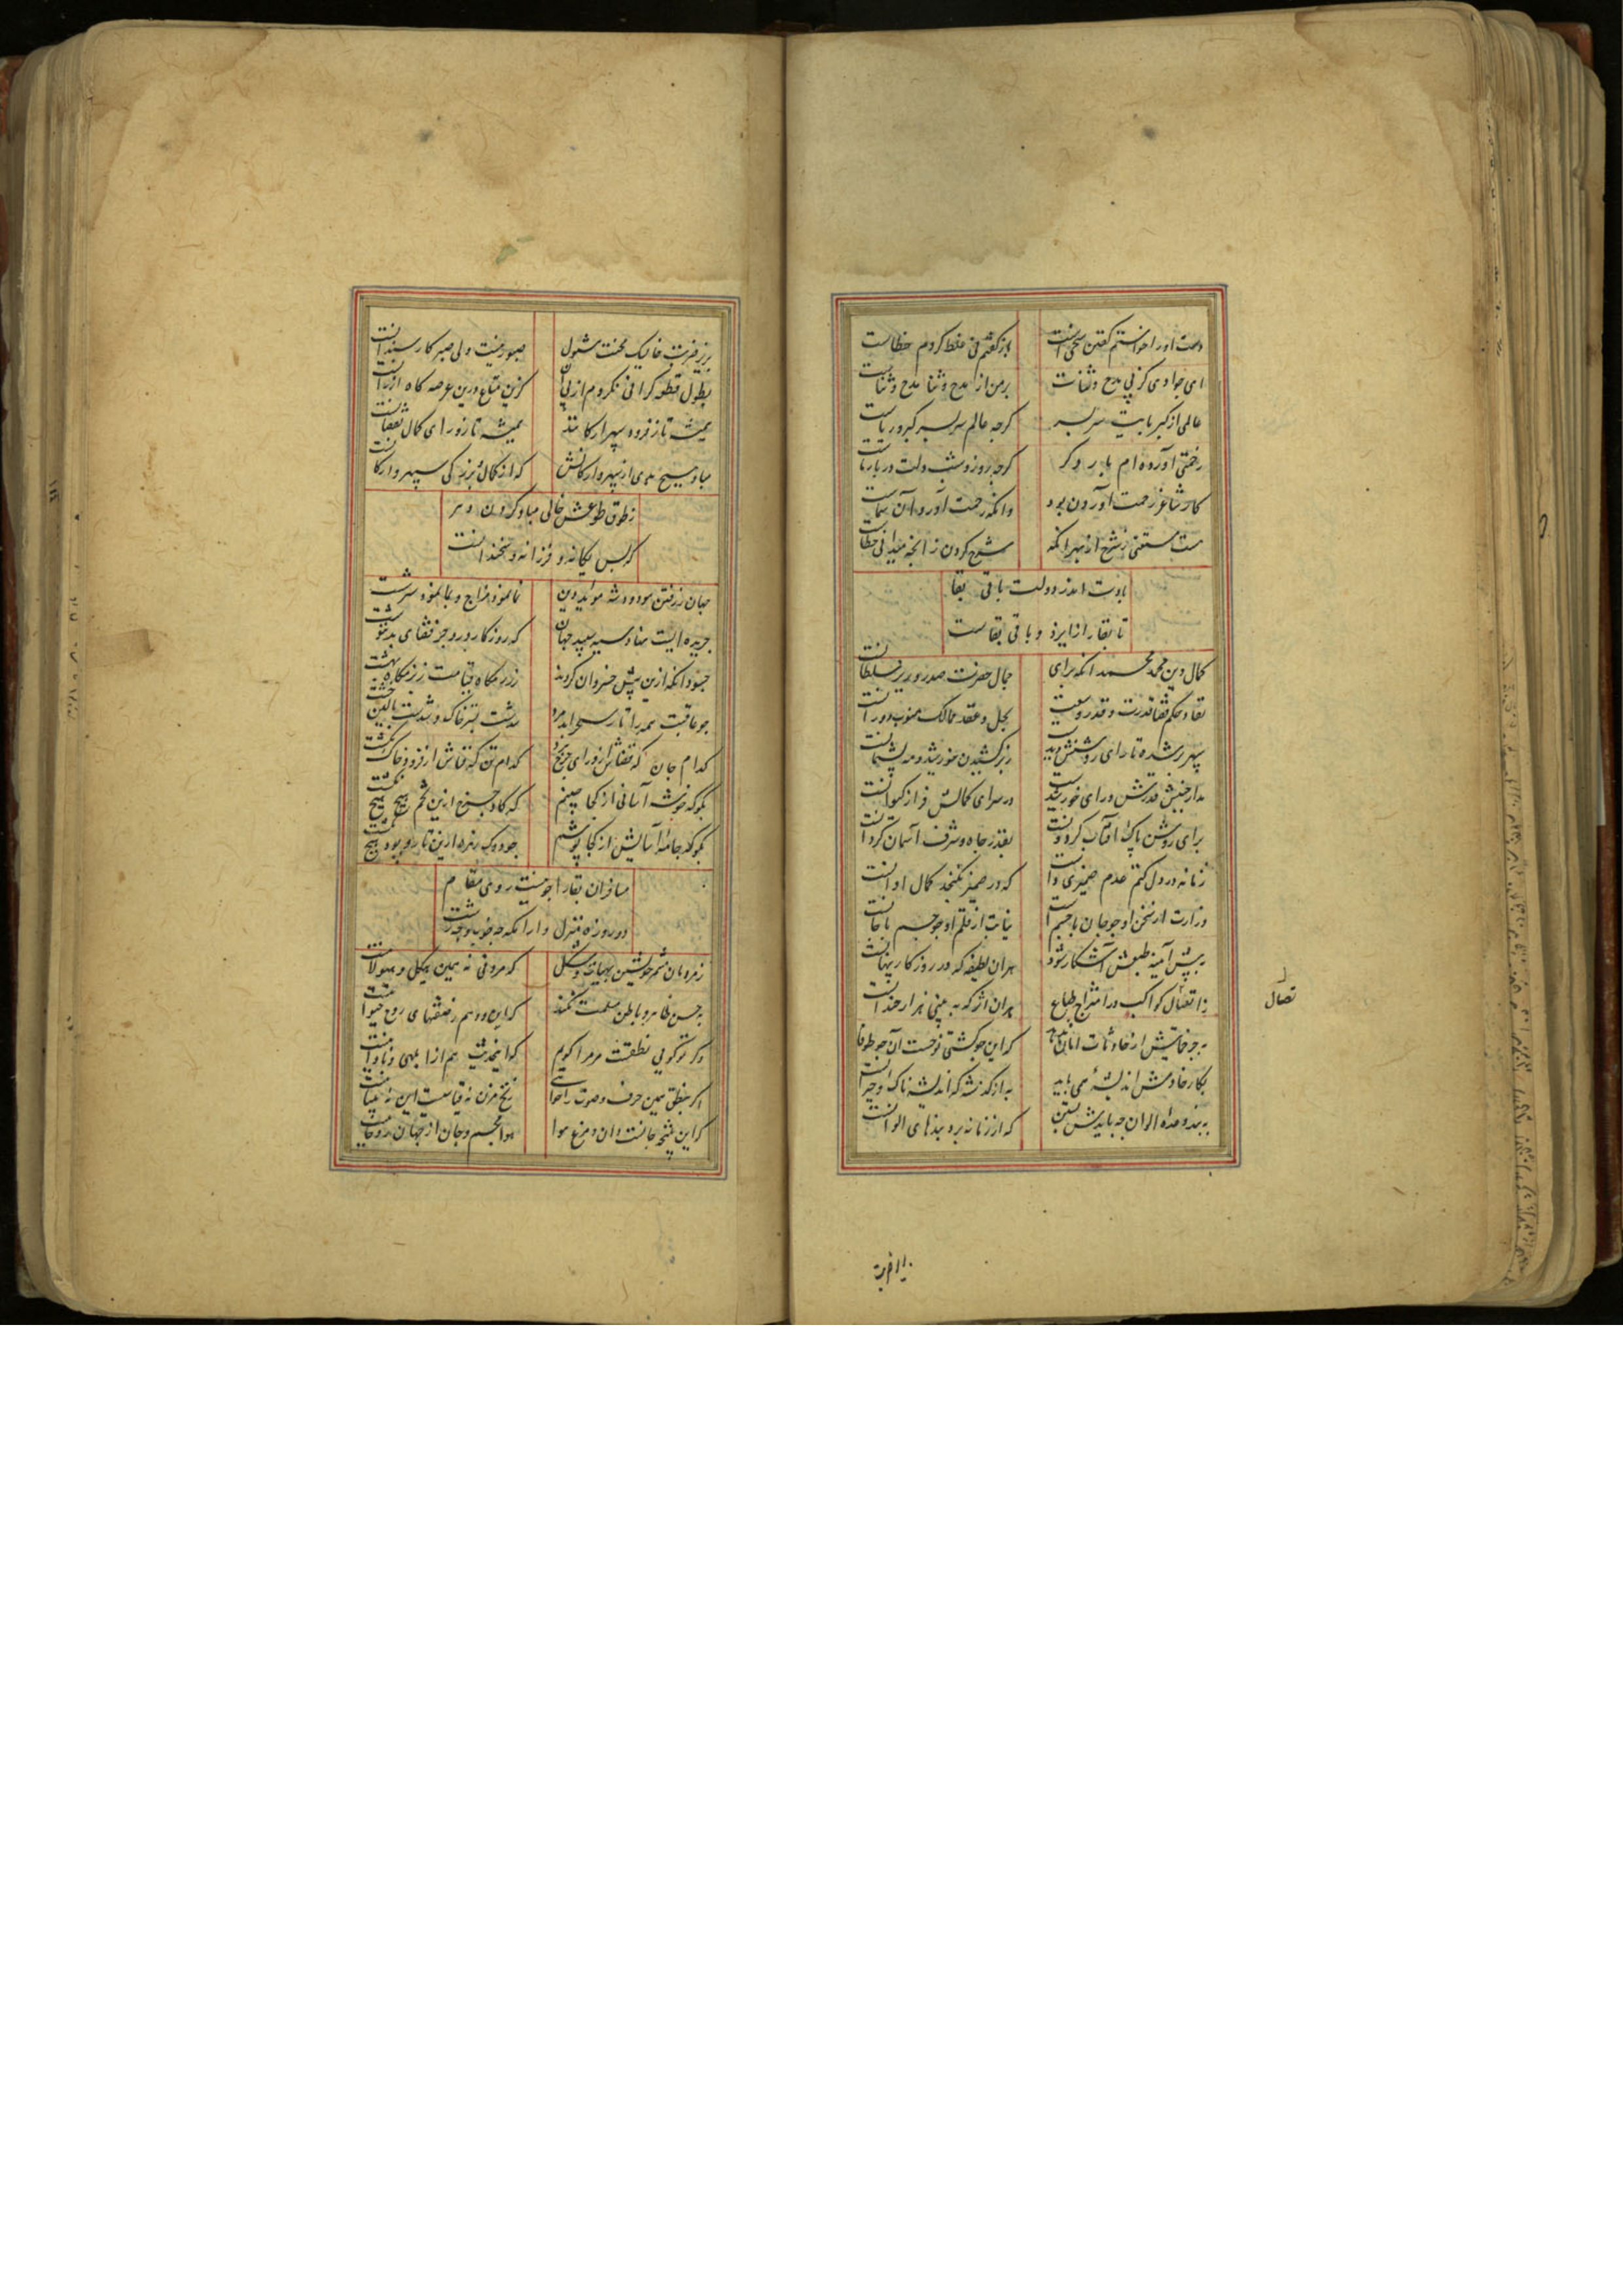 دست او را خواستم گفتن سخی است باز گفتم نی غلط کردم خطاست
ای جوادی کز پی مدح و ثنات بر من از مدح و ثنا مدح و ثناست
عالمی از کبریایت سر بسر گرچه عالم سر بسر کبر و ریاست
زحمتی آورده‌ام بار دگر گرچه روز و شب دلت در بار ماست
کار شاعر زحمت آوردن بود وانکه رحمت آورد آن سماست
هست مستغنی ز شرح از بهر آنکه شرح کردن زانچه میدانی خطاست
بادت اندر دولت باقی بقا
تا بقا را از ایزد و باقی بقاست
کمال دین محمد محمد آنکه برای جمال حضرت صدر وزیر سلطانست
نفاذ حکم قضا قدرت و قدر وسعت بحل و عقد ممالک منوب دورانست
سپهر بر شده تا رای روشنش دید ز بر کشیدن خورشید و مه پشیمانست
مدار جنبش قدرش ورای خورشیدست در سرای کمالش فراز کیوانست
برای روشن پاک آفتاب گردونست بقدر جاه و شرف آسمان گردانست
زمانه در دل کتم عدم ضمیری داشت که در ضمیر نگنجد کمال او آنست
وزارت از سخن او چو جان با جسم است نیابت از قلم او چو جسم با جانست
به پیش آینه طبعش آشکار شود هر آن لطیفه که در روزگار پنهانست
ز اتصال کواکب در امتزاج طباع هر آن اثر که به بینی هزار چندانست
به چرخ پیش از حادثات که این چو کشتی نوحست آن چو طوفانست
بکار حادثش اندیشه می باید به از گذشته که اندیشه ناک و حیرانست
به بند وعده الوان چه بایدش بستن که از زمانه برو بندهای الوانست
تصال
بدین ضربت
بزیر ضربت خایسک محنت صبور نیست ولی صبر کار سندانست
بطول قطعه گرانی نکردم از پی آن کزین متاع درین عرصه گاه ارزانست
همیشه تا ز فرود سپهر ارکانند همیشه تا ز ورای کمال نقصانست
مباد هیچ بدی از سپهر و ارکانش که از کمال بزرگی سپهر و ارکانست
ز طوق طوعش خالی مباد گردن دهر
که بس یگانه و فرزانه و سخندانست
جهان ز رفتن مودود شه مؤید دین نا نموده مزاج و بنا نموده سرشت
جریده ایست نهاده سیه سپید جهان که روزگار درو جز قضای بد ننوشت
خود آنکه ازین پیش خسروان کردند ز رزمگاه قیامت ز بزمگاه بهشت
چو عاقبت همه را تا بسنجر اندر مرد شدست بستر خاک و شدست بالین خشت
کدام جان که قضاش از ورای چرخ کدام تن که فناش از فرود خاک نهشت
مگو که خوشه آسانی از کجا چینم که گاو چرخ ازین تخم هیچ هیچ نکشت
مگو که جامه آسایش از کجا پوشم چو دوک زهره ازین تار پود هیچ نرشت
مسافران بقا را چو نیست روی مقام
دو روزه منزل و آرامگه چه خوب و چه زشت
زمره مان شمر خویشتن بهیات و شکل که مردنی نه همین هیکل و هیولانیست
به حسن ظاهر و باطن مسلمت نکنند که این دو هم ز صفتهای روح حیوانیست
وگر تو گویی نطقست مر مرا گویم کاینحدیث هم از ابلهی و نادانیست
اگر بنطق همین حرف و صوت را خواهی زنخ مزن نه قیاست این نه پیمانیست
کاین نتیجه جانست و آن ز مرغ هوا هوا بجسم و جان از جهان روحانیست